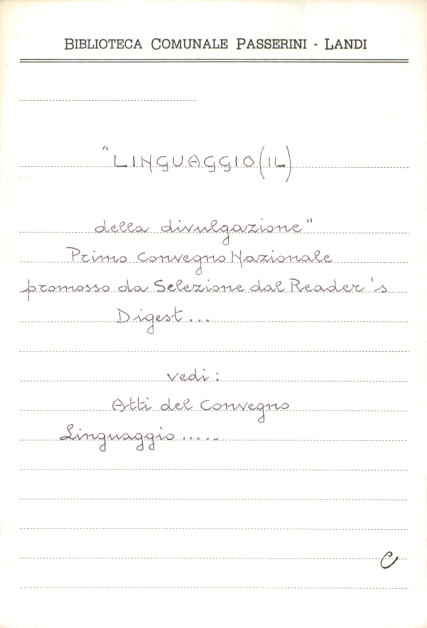 BIBLIOTECA COMUNALE PASSERINI - LANDI
"LINGUAGGIO (IL)
della divulgazione"
Primo Convegno Nazionale
promosso da Selezione dal Reader's
Digest...
vedi:
Atti del Convegno
Linguaggio.....
C